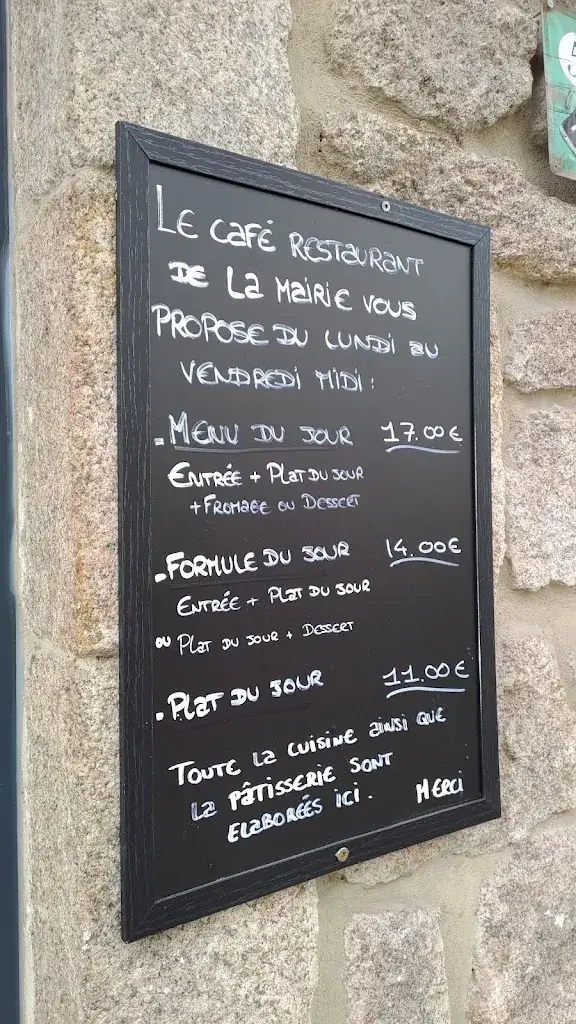 LE CAFÉ RESTAURANT
DE LA MAIRIE VOUS
PROPOSE DU LUNDI AU
VENDREDI MIDI :
- MENU DU JOUR 17.00€
ENTRÉE + PLAT DU JOUR
+ FROMAGE OU DESSERT
- FORMULE DU JOUR 14.00€
ENTRÉE + PLAT DU JOUR
OU PLAT DU JOUR + DESSERT
- PLAT DU JOUR 11.00€
TOUTE LA CUISINE AINSI QUE
LA PÂTISSERIE SONT
ELABORÉES ICI. MERCI